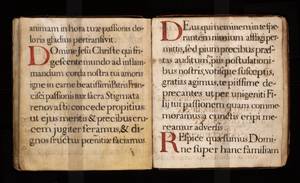 animam in hora tuæ passionis do-
loris gladius pertransivit.
Domine Jesu Christe qui fri-
gescente mundo ad inflam-
mandum corda nostra tui amoris
igne in carne beatissimi Patris Fran-
cisci passionis tuæ sacra Stigmata
renovasti concede propitius
ut ejus meritis & precibus cru-
cem jugiter feramus, & di-
gnos fructus penitentiæ faciamus
Deus qui neminem in te spe-
rantem nimium affligi per-
mittis, sed pium precibus præs-
tas auditum, pro postulationi-
bus nostris, votisque susceptis,
gratias agimus, te piissime de-
precantes ut per unigeniti Fi-
lii tui passionem quam comme-
moramus a cunctis eripi me-
reamur adversis
Respice quæsumus Domi-
ne super hanc familiam